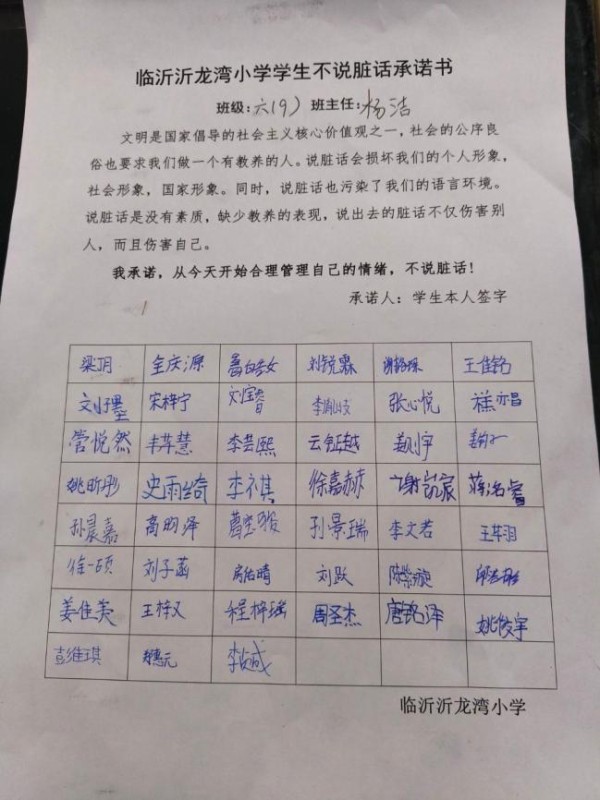 临沂沂龙湾小学学生不说脏话承诺书
班级:六(9) 班主任:杨洁
文明是国家倡导的社会主义核心价值观之一，社会的公序良
俗也要求我们做一个有教养的人。说脏话会损坏我们的个人形象，
社会形象，国家形象。同时，说脏话也污染了我们的语言环境。
说脏话是没有素质，缺少教养的表现，说出去的脏话不仅伤害别
人，而且伤害自己。
我承诺，从今天开始合理管理自己的情绪，不说脏话！
承诺人：学生本人签字
梁玥 全庆源 刘锐霖 王佳铭
刘子墨 宋梓宁 张心悦
管悦然 李芸熙 云钰越
姚昕彤 史雨绮 李祺 徐嘉赫 蒋洺睿
孙晨嘉 高昀泽 孙景瑞 李文若
徐一硕 刘子菡 刘跃
姜佳美 王梓义 程梓瑶 周圣杰 唐铭泽 姚俊宇
彭维琪
临沂沂龙湾小学